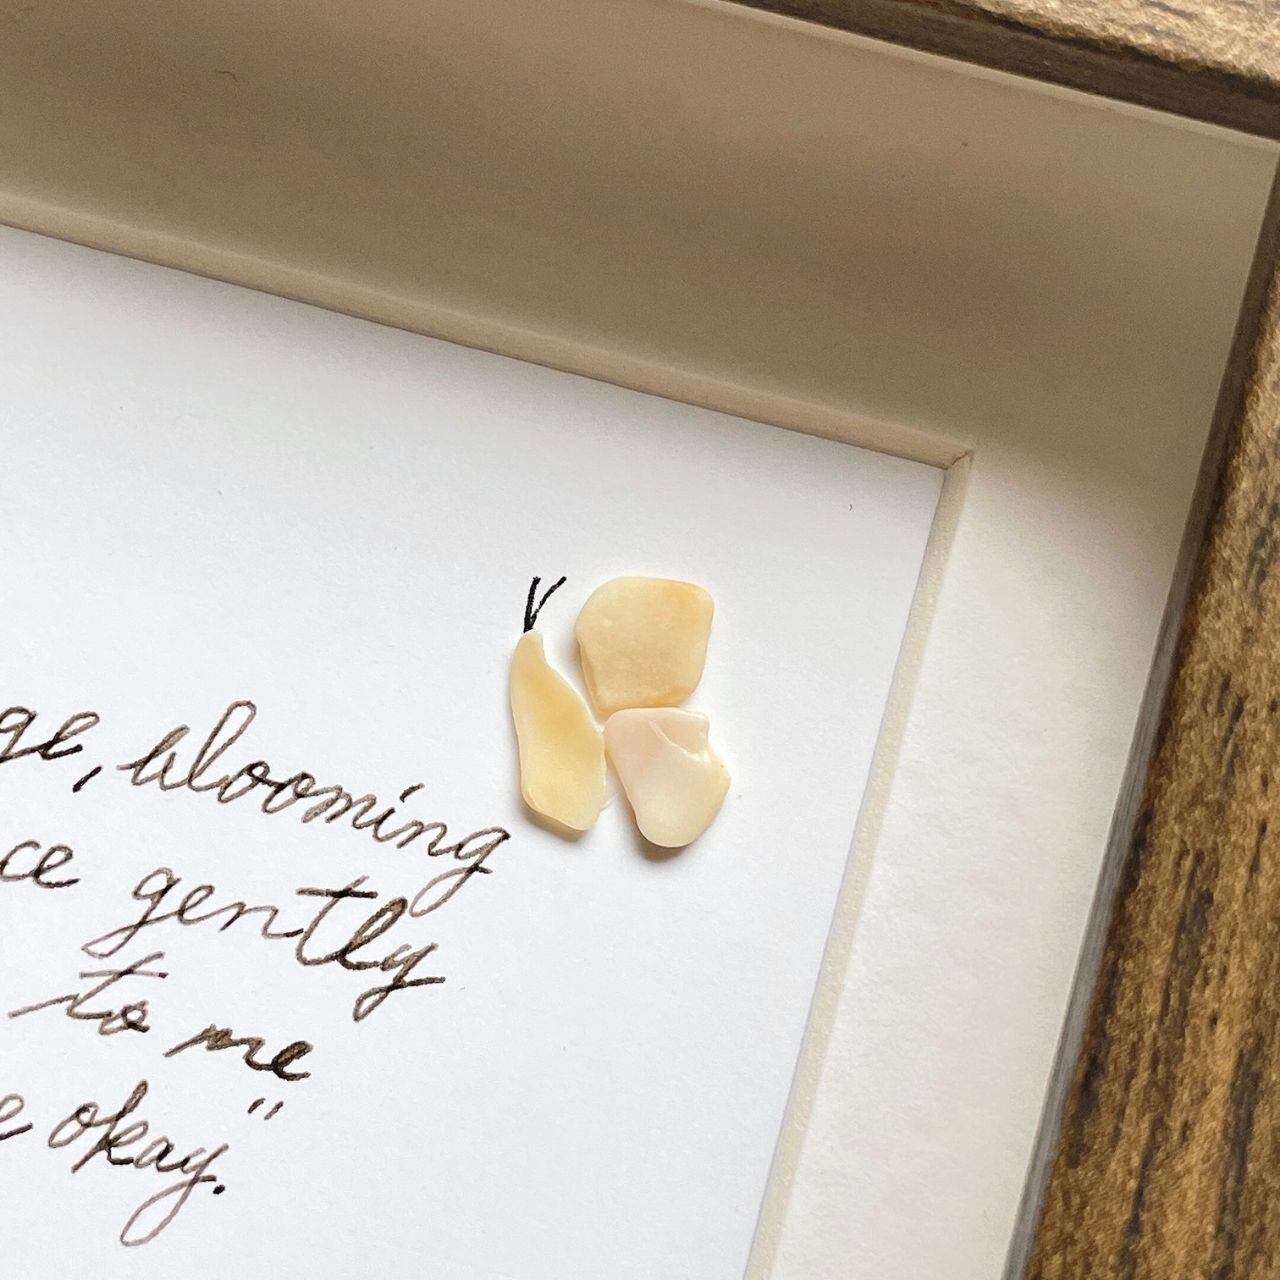 ge, blooming
ce gently
to me
e okay."